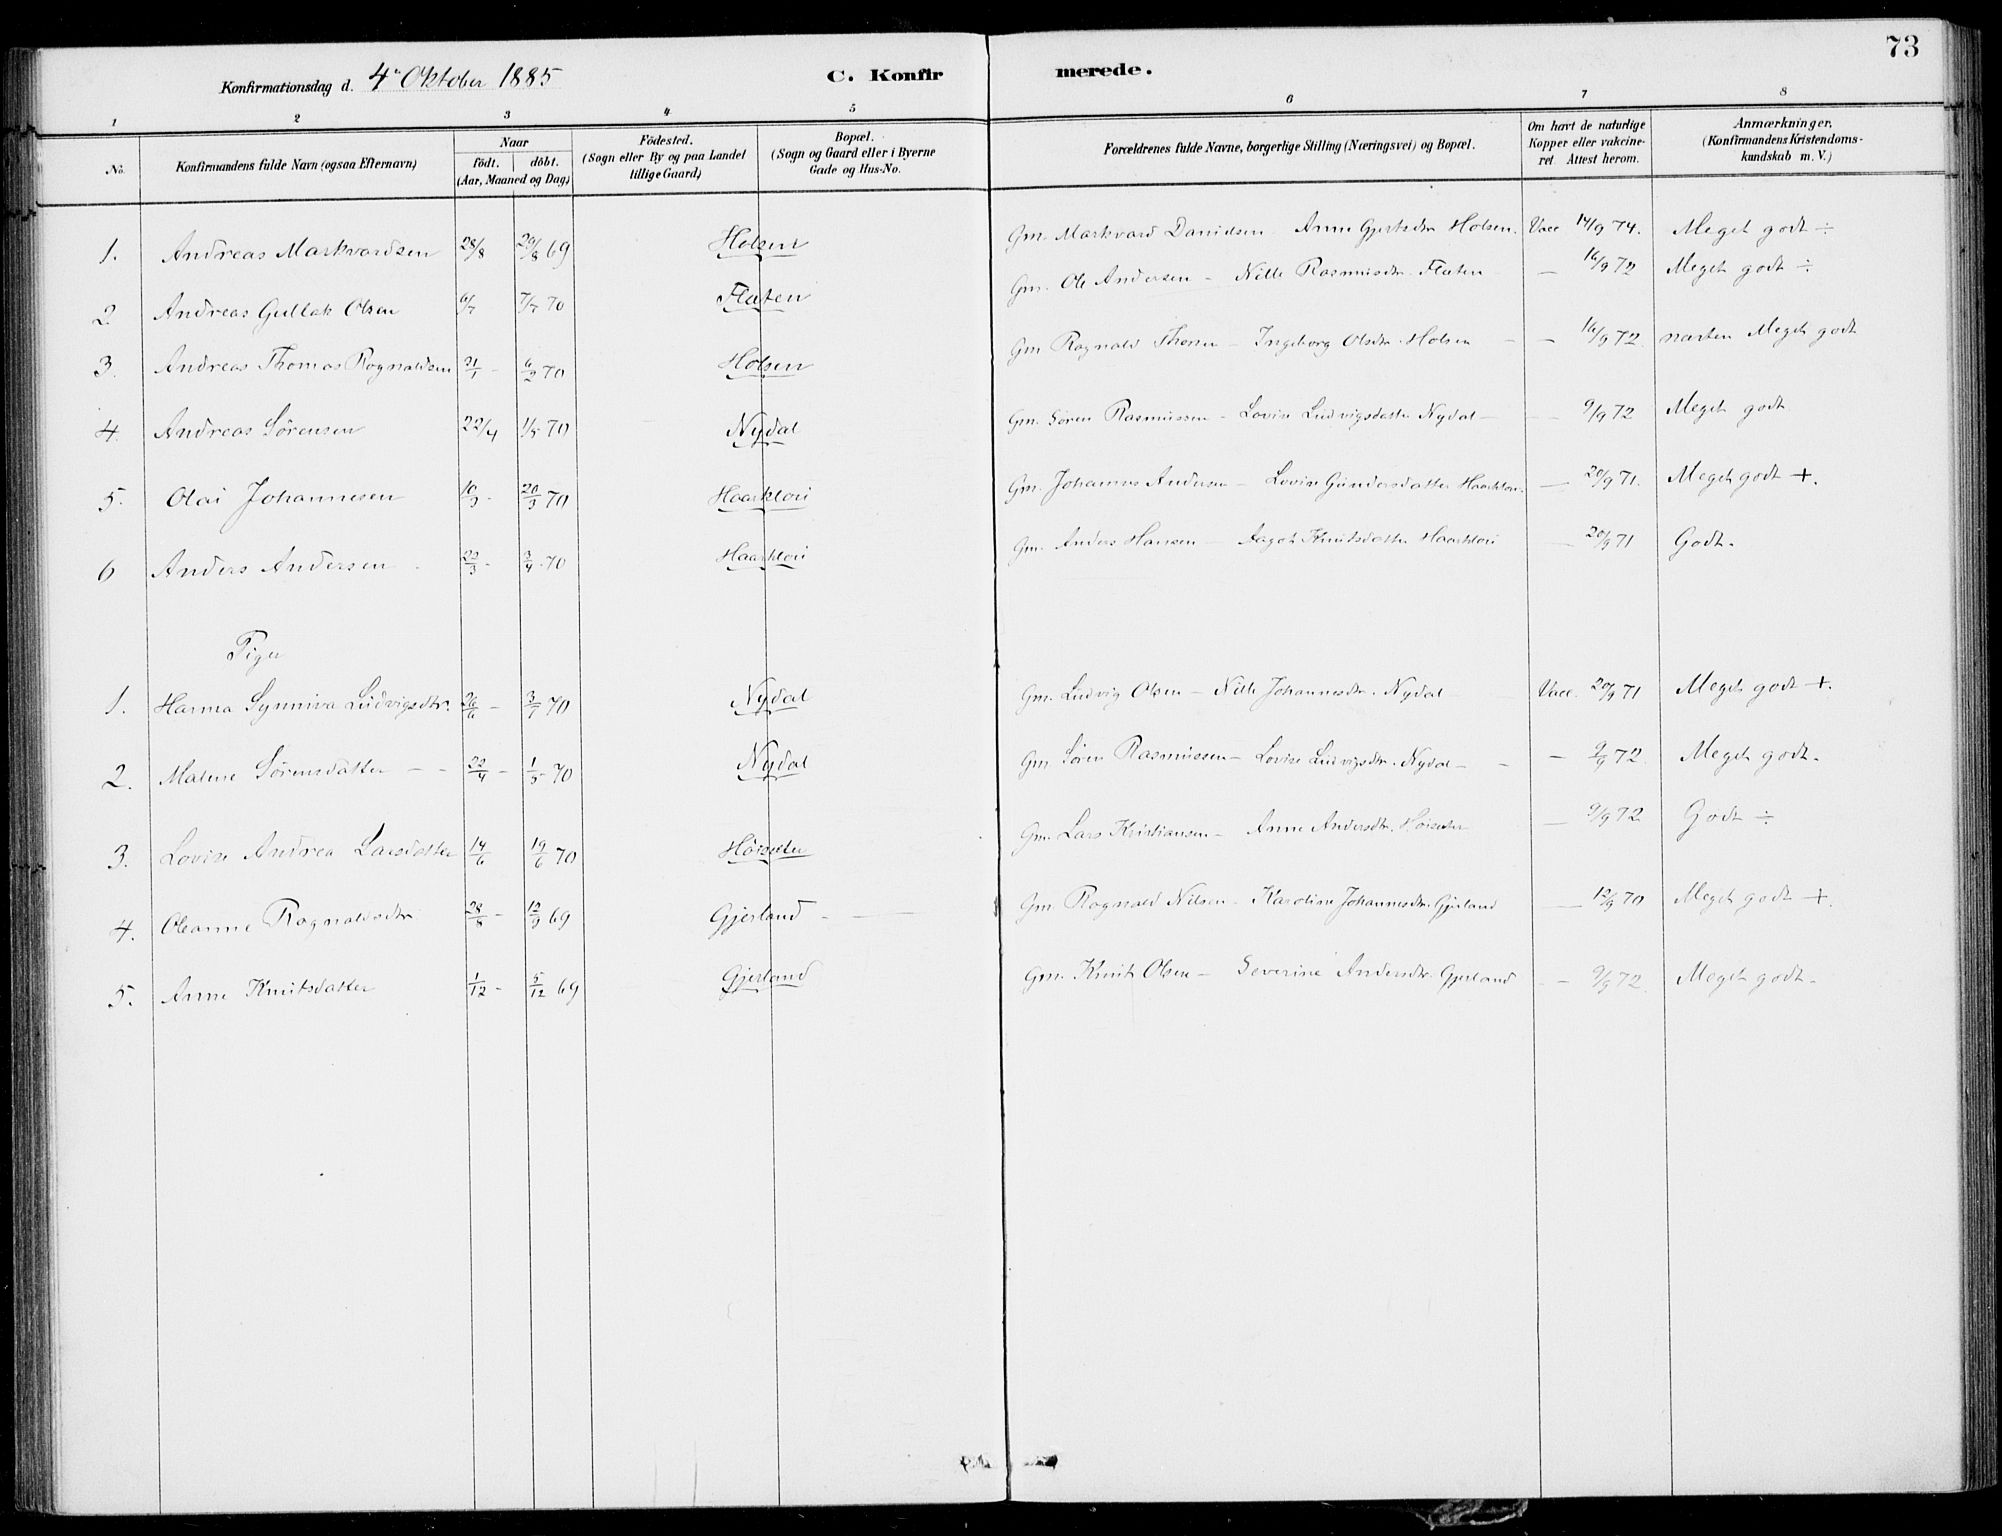 73
Konfirmationsdag d. 4de Oktober 1885 C. Konfirmerede.
1 2 3 4 5 6 7 8
No. Konfirmandens fulde Navn (ogsaa Efternavn) Naar födt. döbt. (Aar, Maaned og Dag.) Födested. (Sogn eller By og paa Landet tillige Gaard) Bopæl. (Sogn og Gaard eller i Byerne Gade og Hus-No. Forældrenes fulde Navne, borgerlige Stilling (Næringsvei) og Bopæl. Om havt de naturlige Kopper eller vakcineret. Attest herom. Anmærkninger, (Konfirmandens Kristendomskundskab m. V.)
1. Andreas Markvardsen 28/8 29/8 69 Holsen Gm. Markvard Danielsen Anne Gjertsdtr Holsen. Vacc 14/9 74. Meget godt ÷
2. Andreas Gullak Olsen 6/7 7/7 70 Flaten Gm. Ole Andersen – Nille Rasmusdtr. Flaten — 16/9 72 Meget godt ÷
3. Andreas Thomas Rognaldsen 21/1 - 6/2 70 Holsen Gm Rognald Thoner – Ingeborg Olsdtr. Holsen – – 16/9 72. næsten Meget godt
4. Andreas Sörensen 22/4 1/5 70 Nydal Gm. Sören Rasmussen – Lovise Ludvigsdatter Nydal – — 9/9 72 Meget godt
5. Olai Johannesen 10/3 - 20/3 70 Haarklori Gm. Johannes Andersen – Lovise Gundersdatter Haarklori. — 20/9 71. Meget godt +.
6 Anders Andersen 22/3 - 3/4 70 Haarklori Gm. Anders Hansen – Aagot Knutsdatter Haarklori — 20/9 71 Godt.
Piger
1. Hanna Synniva Ludvigsdtr. 26/6 – 3/7 70 Nydal Gm. Ludvig Olsen – Nille Johannesdtr. Nydal – Vacc. 20/9 71 Meget godt +.
2. Malene Sörensdatter – – 22/4 – 1/5 70 Nydal Gm. Sören Rasmussen – Lovise Ludvigsdtr. Nydal – – – 9/9 72. Meget godt.
3. Lovise Andrea Larsdatter 14/6 19/6 70 Höiseter Gm. Lars Kristiansen – Anne Andersdtr. Höiseter — 9/9 72 Godt ÷
4. Oleanne Rognaldsdtr 28/8 – 12/9 69 Gjerland – — Gm. Rognald Nilsen – Karoline Johannesdtr. Gjerland — 12/9 70 Meget godt +.
5. Anne Knutsdatter 1/12 - 5/12 69 Gjerland Gm. Knut Olsen – Severine Andersdtr. Gjerland – – 9/9 72. Meget godt.